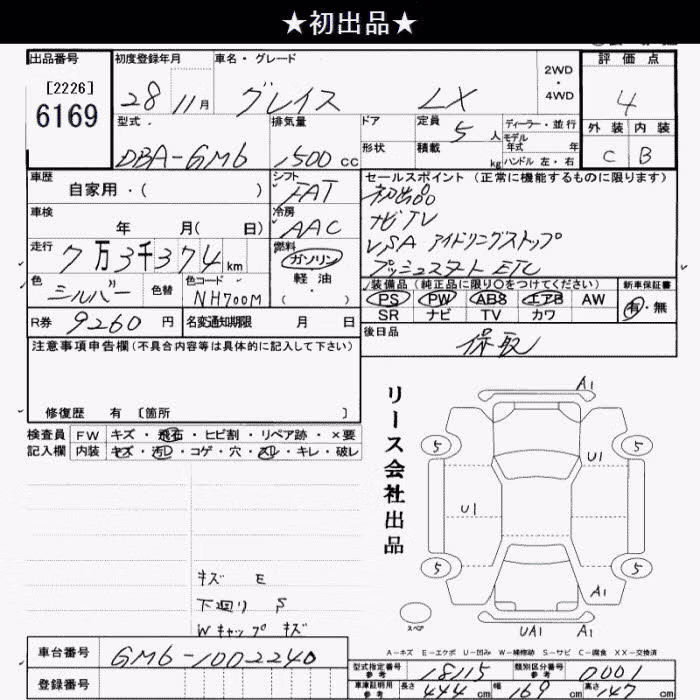 ★初出品★
出品番号
[2226]
6169
初度登録年月
28 11月
車名・グレード
グレイス LX
2WD
・
4WD
評価点
4
外装 内装
C B
型式
DBA-GM6
排気量
1500 cc
ドア
形状
定員 5 人
積載 kg
ディーラー・並行
モデル
年式 年
ハンドル 左・右
車歴
自家用・( )
シフト
FAT
冷房
AAC
車検
年 月( 日)
走行
7万3千374 km
燃料
ガソリン
軽油
( ・ )
色
シルバー
色替
色コード
NH700M
R券 9260 円
名変通知期限 月 日
セールスポイント(正常に機能するものに限ります)
初出品
ナビTV
VSA アイドリングストップ
プッシュスタート ETC
装備品(純正品に限り○をつけてください)
PS PW ABS エアB AW
SR ナビ TV カワ
新車保証書
有・無
後日品
保取
注意事項申告欄(不具合内容等は具体的に記入して下さい)
修復歴 有 〔箇所 〕
検査員
記入欄
FW キズ・飛石・ヒビ割・リペア跡・×要
内装 キズ・汚れ・コゲ・穴・スレ・キレ・破レ
キズ E
下廻り S
Wキャップ キズ
リース会社出品
A1
5 5
U1
U1
5 5
A1
スペア
UA1 A1
A-キズ E-エクボ U-凹み W-補修跡 S-サビ C-腐食 XX-交換済
車台番号
GM6-1002240
登録番号
型式指定番号
参考
18115
類別区分番号
参考
0001
車庫証明用
参考
長さ 444 cm 幅 169 cm 高さ 147 cm